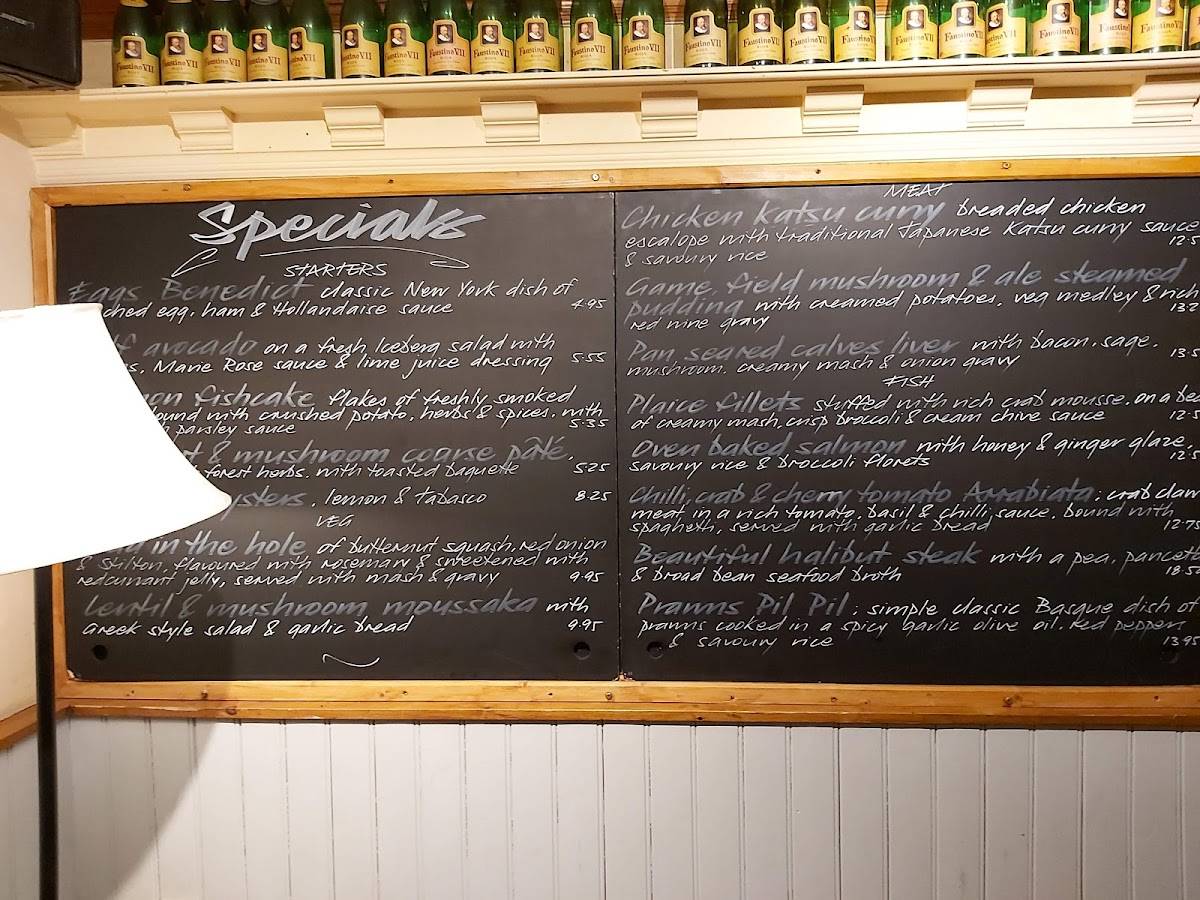 Faustino VII
Specials
STARTERS
Eggs Benedict classic New York dish of
ched egg, ham & Hollandaise sauce 4.95
avocado on a fresh Iceberg salad with
Marie Rose sauce & lime juice dressing 5.55
fishcake flakes of freshly smoked
ound with crushed potato, herbs & spices, with
parsley sauce 5.35
& mushroom coarse pâté,
forest herbs, with toasted baguette 5.25
ysters, lemon & tabasco 8.25
VEG
in the hole, of butternut squash, red onion
& Stilton, flavoured with rosemary & sweetened with
redcurrant jelly, served with mash & gravy 9.95
Lentil & mushroom moussaka with
Greek style salad & garlic bread 9.95
MEAT
Chicken Katsu curry breaded chicken
escalope with traditional Japanese Katsu curry sauce
& savoury rice 12.5
Game, field mushroom & ale steamed
pudding with creamed potatoes, veg medley & rich
red wine gravy 13.2
Pan seared calves liver with bacon, sage,
mushroom, creamy mash & onion gravy 13.5
FISH
Plaice fillets stuffed with rich crab mousse, on a bed
of creamy mash, crisp broccoli & cream chive sauce 12.5
Oven baked salmon with honey & ginger glaze,
savoury rice & broccoli florets 12.5
Chilli, crab & cherry tomato Arrabiata; crab claw
meat in a rich tomato, basil & chilli sauce, bound with
spaghetti, served with garlic bread 12.75
Beautiful halibut steak with a pea, pancett
& broad bean seafood broth 18.50
Prawns Pil Pil; simple classic Basque dish of
prawns cooked in a spicy garlic olive oil, red peppers
& savoury rice 13.95